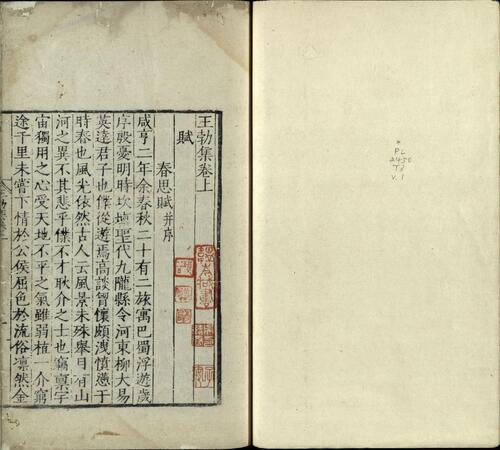 王勃集卷上
賦
春思賦并序
咸亨二年余春秋二十有二旅寓巴蜀浮遊歲
序殷憂明時坎壈聖代九隴縣令河東柳大易
英達君子也僕從遊焉高談胷懷頗洩憤懣于
時春也風光依然古人云風景未殊舉目有山
河之異不其悲乎僕不才耿介之士也竊稟宇
宙獨用之心受天地不平之氣雖弱植一介窮
途千里未嘗下情於公侯屈色於流俗凛然金
*
PL
2450
T3
v.1